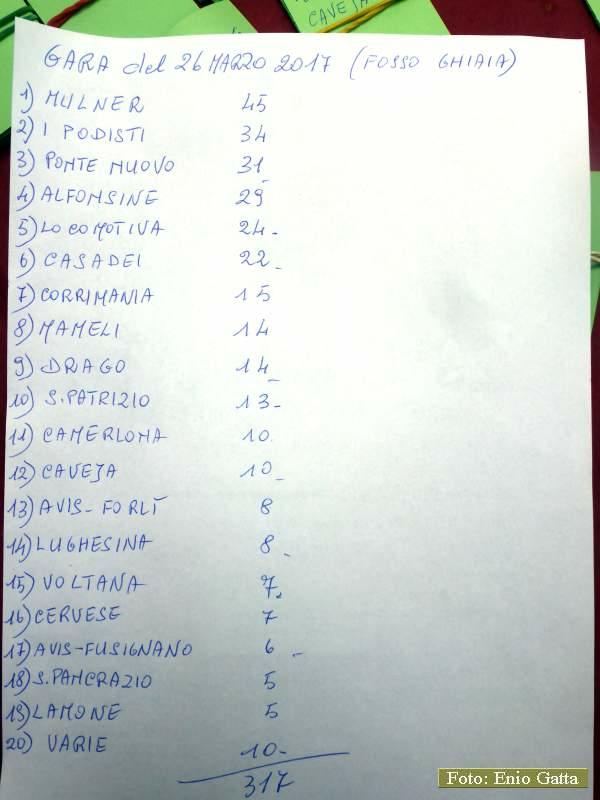 CAVEJA
GARA del 26 MARZO 2017 (FOSSO GHIAIA)
1) MULNER 45
2) I PODISTI 34
3) PONTE NUOVO 31
4) ALFONSINE 29
5) LOCOMOTIVA 24-
6) CASADEI 22-
7) CORRIMANIA 15
8) MAMELI 14
9) DRAGO 14-
10) S.PATRIZIO 13-
11) CAMERLONA 10
12) CAVEJA 10-
13) AVIS-FORLÌ 8
14) LUGHESINA 8-
15) VOLTANA 7.
16) CERVESE 7
17) AVIS-FUSIGNANO 6-
18) S.PANCRAZIO 5
19) LAMONE 5
20) VARIE 10-
317
Foto: Enio Gatta